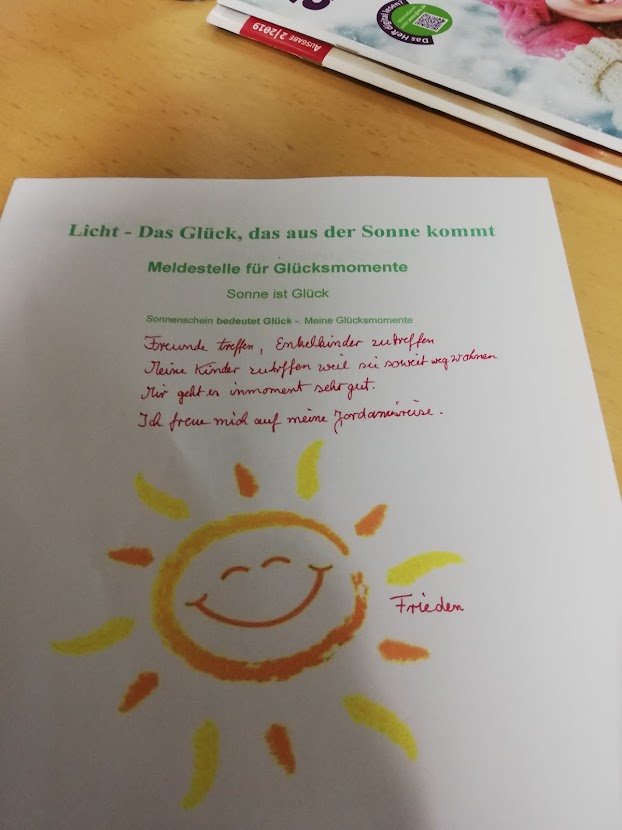 Das Heft
AUSGABE 2/2019
Licht - Das Glück, das aus der Sonne kommt
Meldestelle für Glücksmomente
Sonne ist Glück
Sonnenschein bedeutet Glück -. Meine Glücksmomente
Freunde treffen, Enkelkinder zutreffen
Meine Kinder zutreffen weil sie soweit weg wohnen
Mir geht es inmoment sehr gut.
Ich freue mich auf meine Jordanienreise.
Frieden